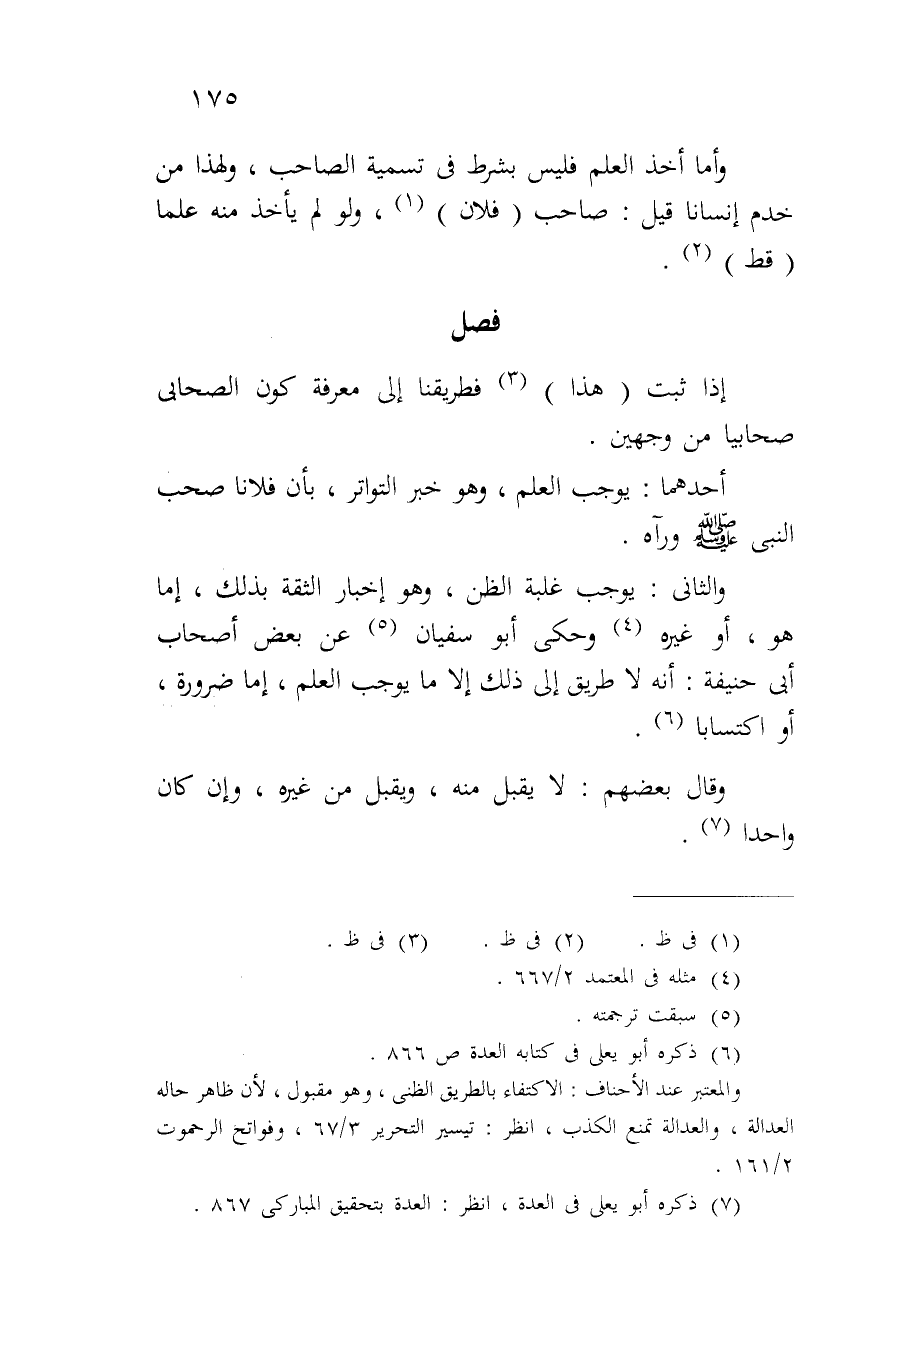 ١٧٥
وأما أخذ العلم فليس بشرط فى تسمية الصاحب ، ولهذا من
خدم إنسانا قيل : صاحب ( فلان ) (١) ، ولو لم يأخذ منه علما
( قط ) (٢) .
فصل
إذا ثبت ( هذا ) (٣) فطريقنا إلى معرفة كون الصحابى
صحابيا من وجهين .
أحدهما : يوجب العلم ، وهو خبر التواتر ، بأن فلانا صحب
النبى ﷺ ورآه .
والثانى : يوجب غلبة الظن ، وهو إخبار الثقة بذلك ، إما
هو ، أو غيره (٤) وحكى أبو سفيان (٥) عن بعض أصحاب
أبى حنيفة : أنه لا طريق إلى ذلك إلا ما يوجب العلم ، إما ضرورة ،
أو اكتسابا (٦) .
وقال بعضهم : لا يقبل منه ، ويقبل من غيره ، وإن كان
واحدا (٧) .
(١) فى ظ . (٢) فى ظ . (٣) فى ظ .
(٤) مثله فى المعتمد ٦٦٧/٢ .
(٥) سبقت ترجمته .
(٦) ذكره أبو يعلى فى كتابه العدة ص ٨٦٦ .
والمعتبر عند الأحناف : الاكتفاء بالطريق الظنى ، وهو مقبول ، لأن ظاهر حاله
العدالة ، والعدالة تمنع الكذب ، انظر : تيسير التحرير ٦٧/٣ ، وفواتح الرحموت
١٦١/٢ .
(٧) ذكره أبو يعلى فى العدة ، انظر : العدة بتحقيق المباركى ٨٦٧ .